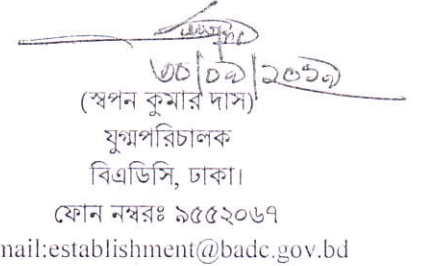 ৩০/০৯/২০১৯
(স্বপন কুমার দাস)
যুগ্মপরিচালক
বিএডিসি, ঢাকা।
ফোন নম্বরঃ ৯৫৫২০৬৭
mail:establishment@badc.gov.bd